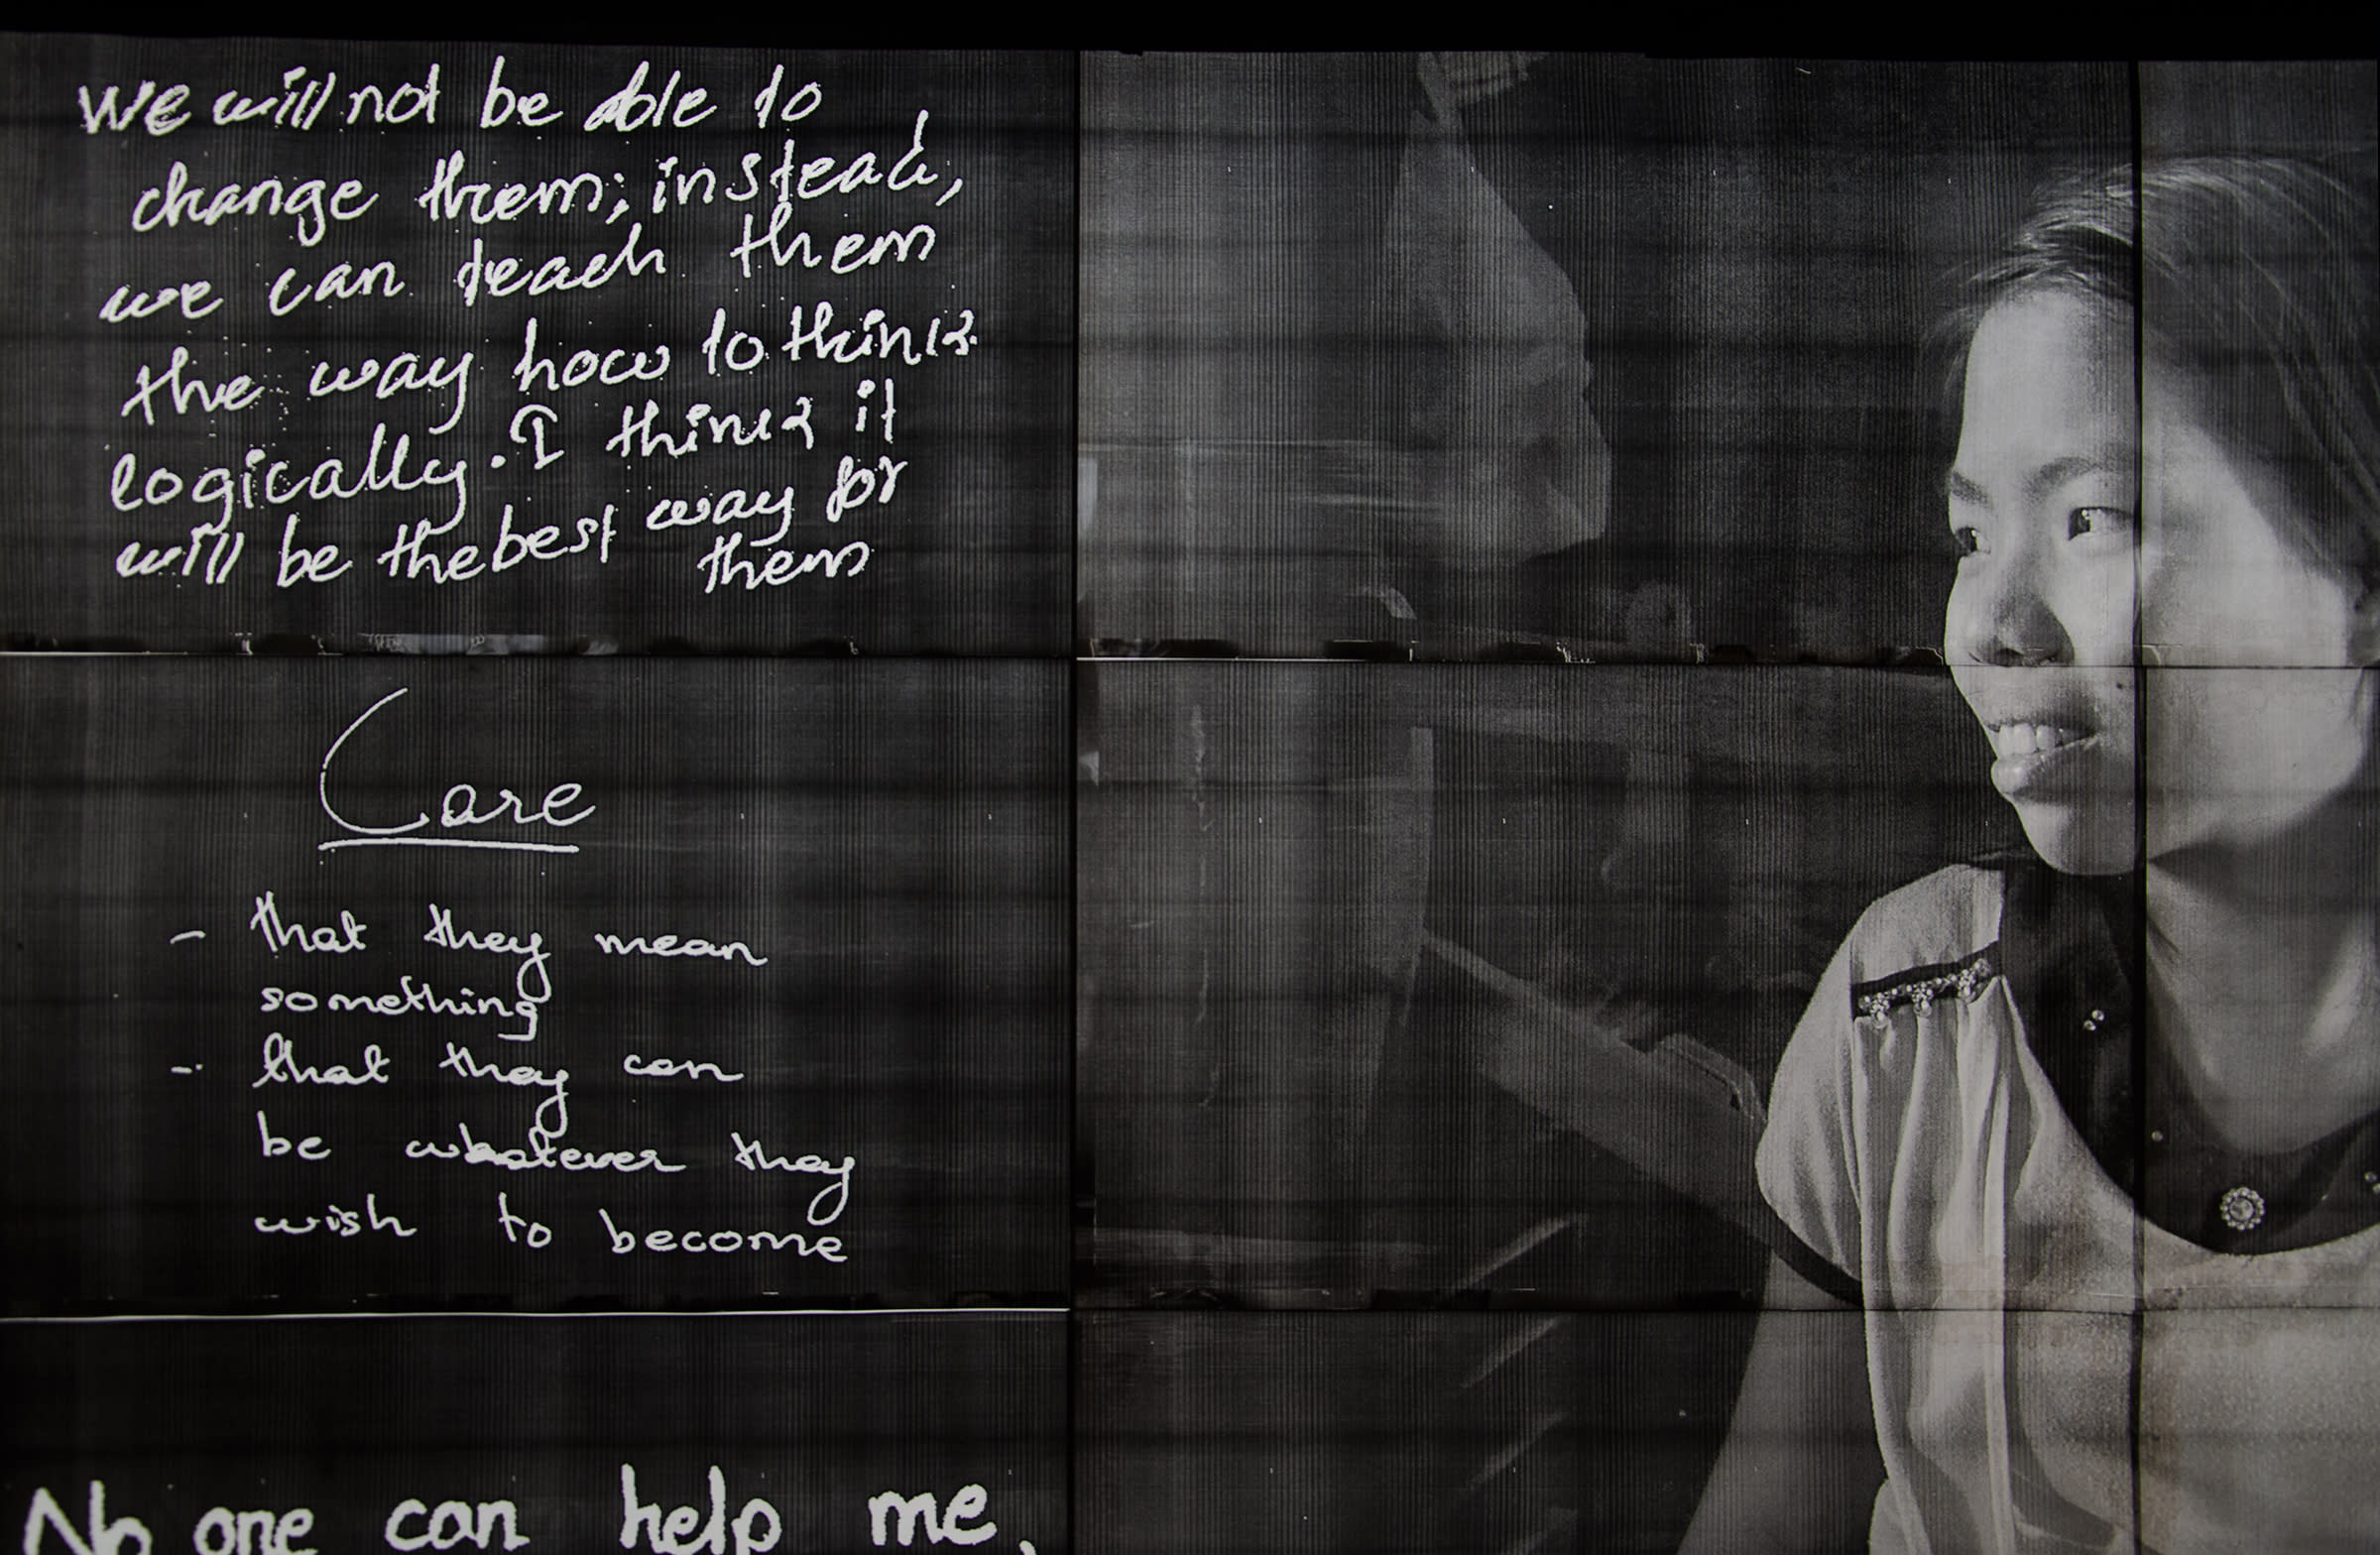 We will not be able to
change them; instead,
we can teach them
the way how to think
logically. I think it
will be the best way for
them
Care
- that they mean
something
- that they can
be whatever they
wish to become
No one can help me,